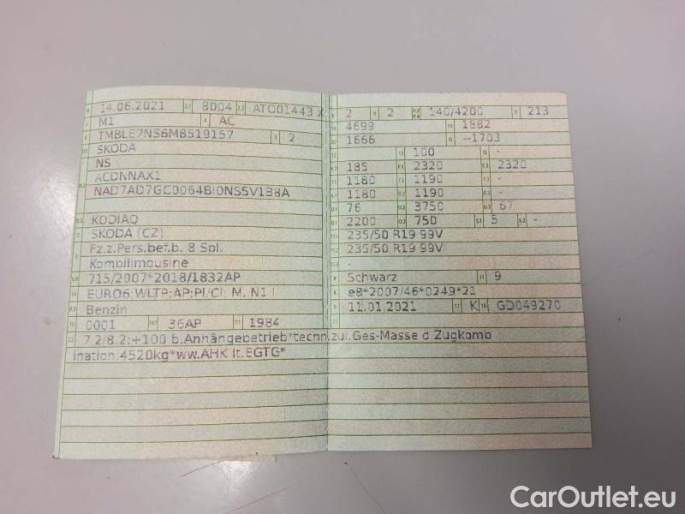 14.06.2021 8004 ATO01443 X
M1 AC
TMBLE7NS6M8519157 2
SKODA
NS
ACDNNAX1
NAD7AD7GC0064BI0NS5V1B8A
KODIAQ
SKODA (CZ)
Fz.z.Pers.bef.b. 8 Spl.
Kombilimousine
715/2007*2018/1832AP
EURO6;WLTP;AP;PI/CI; M, N1 I
Benzin
0001 36AP 1984
2 2 140/4200 213
4699 1882
1666 –1703
100 -
185 2320 2320
1180 1190 -
1180 1190 -
76 3750 67
2200 750 5 -
235/50 R19 99V
235/50 R19 99V
-
Schwarz 9
e8*2007/46*0249*21
11.01.2021 K GD049270
7.2/8.2:+100 b.Anhängebetrieb*techn.zul.Ges-Masse d.Zugkomb
ination.4520kg*ww.AHK lt.EGTG*
CarOutlet.eu